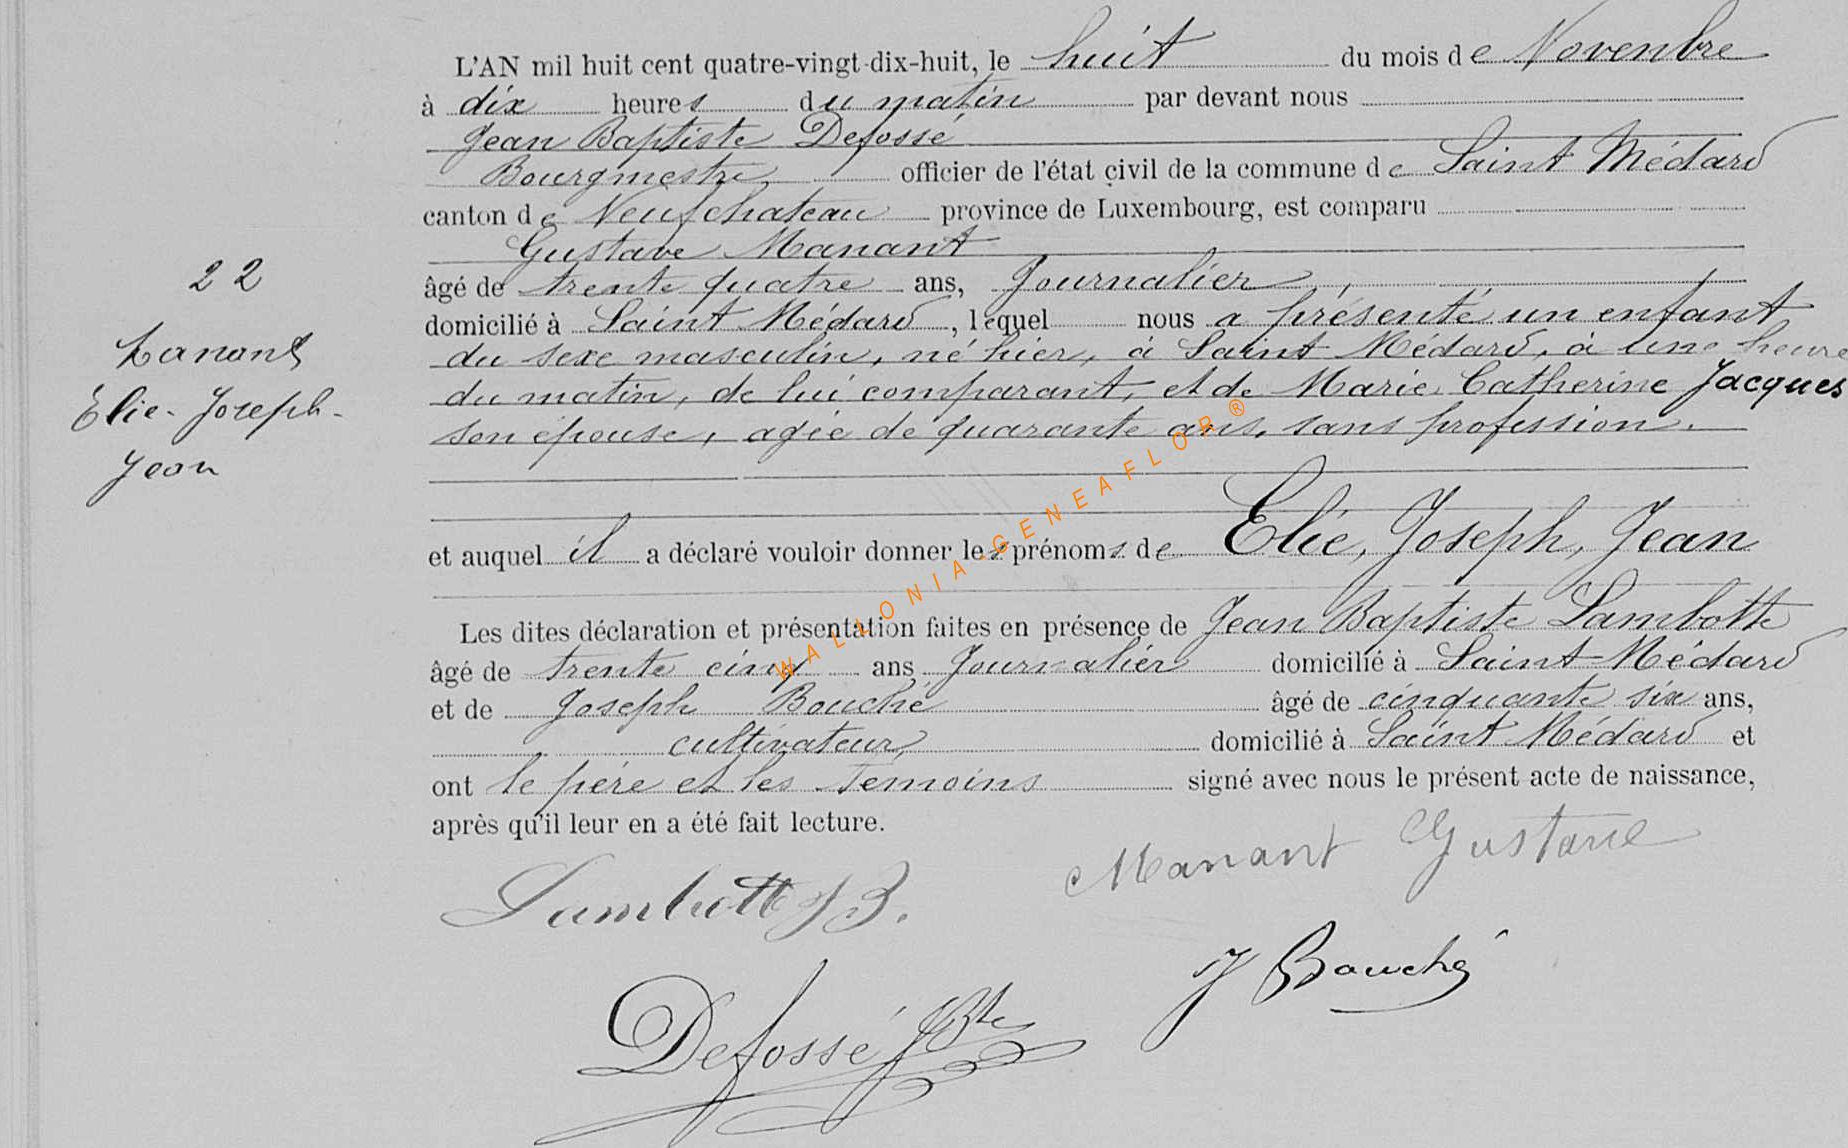 L'AN mil huit cent quatre-vingt-dix-huit, le huit du mois de Novenbre
à dix heures du matin par devant nous
Jean Baptiste Defossé
Bourgmestre, officier de l'état civil de la commune de Saint Médard
canton de Neufchateau province de Luxembourg, est comparu
Gustave Manant
22
âgé de trente quatre ans, Journalier,
domicilié à Saint Médard, lequel nous a présenté un enfant
Manant
du sexe masculin, né hier, à Saint Médard, à une heure
du matin, de lui comparant, et de Marie Catherine Jacques
Elie-Joseph-
son épouse, agée de quarante ans, sans profession.
Jean
et auquel il a déclaré vouloir donner les prénoms de Elie, Joseph, Jean
Les dites déclaration et présentation faites en présence de Jean Baptiste Lambotte
âgé de trente cinq ans Journalier domicilié à Saint-Médard
et de Joseph Bouché âgé de cinquante six ans,
cultivateur, domicilié à Saint Médard et
ont le père et les Témoins signé avec nous le présent acte de naissance,
après qu'il leur en a été fait lecture.
Manant Gustave
Lambotte JB.
J Bouché
Defossé JBte
WALLONIA-GENEAFLOR ®